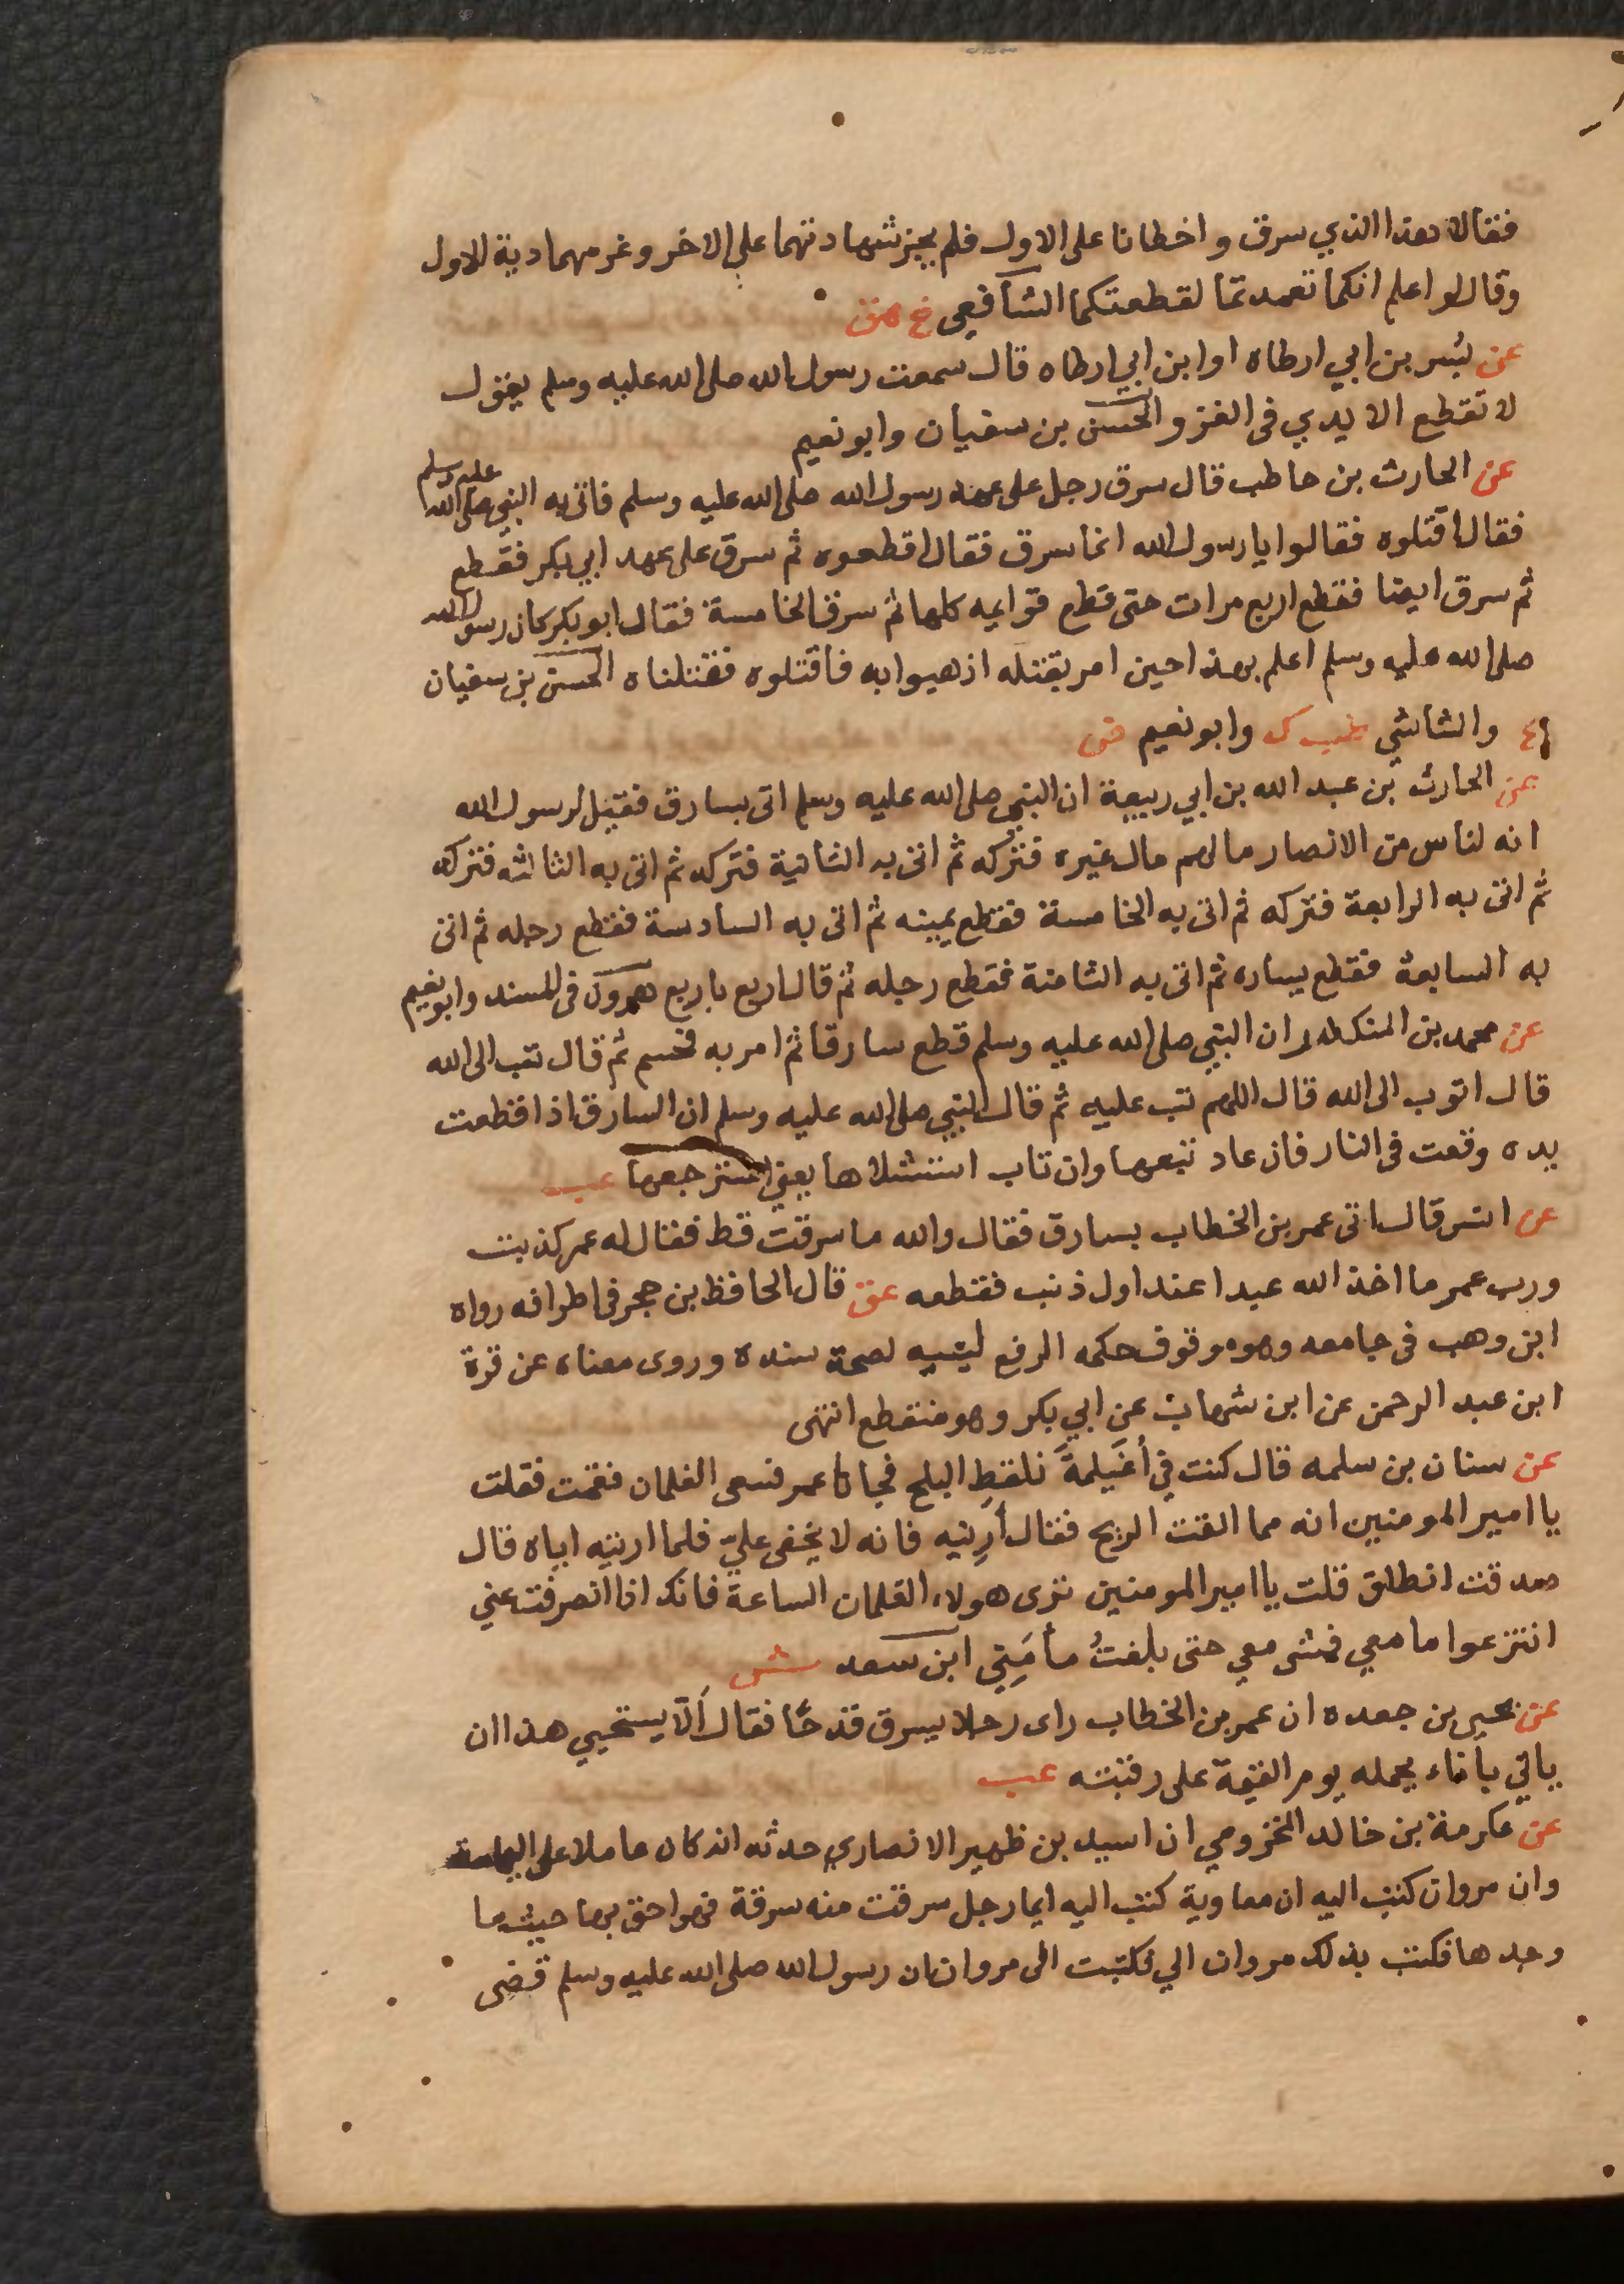 فقالا هذا الذي سرق واخطانا على الاول فلم يجز شهادتهما على الاخر وغرمهما دية الاول
وقال لو اعلم انكما تعمدتما لقطعتكما الشافعي خ هق
عن بُسر بن ابي ارطاه او ابن ابي ارطاه قال سمعت رسول الله صلى الله عليه وسلم يقول
لا تقطع الايدي في الغزو الحسن بن سفيان وابو نعيم
عن الحارث بن حاطب قال سرق رجل على عهد رسول الله صلى الله عليه وسلم فاتى به النبي صلى الله عليه وسلم
فقال اقتلوه فقالوا يا رسول الله انما سرق فقال اقطعوه ثم سرق على عهد ابي بكر فقطع
ثم سرق ايضا فقطع اربع مرات حتى قطع قوايمه كلها ثم سرق الخامسة فقال ابو بكر كان رسول الله
صلى الله عليه وسلم اعلم بهذا حين امر بقتله اذهبوا به فاقتلوه فقتلناه الحسن بن سفيان
والشاشي طب ك وابو نعيم ض
عن الحارث بن عبد الله بن ابي ربيعة ان النبي صلى الله عليه وسلم اتى بسارق فقيل لرسول الله
انه لناس من الانصار ما لهم مال غيره فتركه ثم اتى به الثانية فتركه ثم اتى به الثالثه فتركه
ثم اتى به الرابعة فتركه ثم اتى به الخامسة فقطع يمينه ثم اتى به السادسة فقطع رجله ثم اتى
به السابعة فقطع يساره ثم اتى به الثامنة فقطع رجله ثم قال اربع باربع هرون في المسند وابو نعيم
عن محمد بن المنكدر ان النبي صلى الله عليه وسلم قطع سارقا ثم امر به فحسم ثم قال تب الى الله
قال اتوب الى الله قال اللهم تب عليه ثم قال النبي صلى الله عليه وسلم ان السارق اذا قطعت
يده وقعت في النار فان عاد تبعها وان تاب استشلاها يعني استرجعها عب
عن انس قال اتى عمر بن الخطاب بسارق فقال والله ما سرقت قط فقال له عمر كذبت
ورب عمر ما اخذ الله عبدا عند اول ذنب فقطعه هق قال الحافظ بن حجر في اطرافه رواه
ابن وهب في جامعه وهو موقوف حكمه الرفع لصحة سنده وروى معناه عن قرة
ابن عبد الرحمن عن ابن شهاب عن ابي بكر وهو منقطع انتهى
عن سنان بن سلمه قال كنت في أُغَيلمةَ نلقط البلح فجانا عمر فسعى الغلمان فقمت فقلت
يا امير المومنين انه مما القت الريح فقال أَرِنيه فانه لا يخفى عليّ فلما اريته اياه قال
صدقت انطلق قلت يا امير المومنين ترى هولاء الغلمان الساعة فانك اذا انصرفت عني
انتزعوا ما معي فمشى معي حتى بلغتُ مأمَنِي ابن سعد ش
عن يحيى بن جعده ان عمر بن الخطاب راى رجلا يسرق قدحًا فقال أَلَّا يستحيي هذا ان
ياتي باناء يحمله يوم القيمة على رقبته عب
عن عكرمة بن خالد المخزومي ان اسيد بن ظهير الانصاري حدثه انه كان عاملا على اليمامة
وان مروان كتب اليه ان معاوية كتب اليه ايما رجل سرقت منه سرقة فهو احق بها حيث ما
وجدها فكتب بذلك مروان الي فكتبت الى مروان ان رسول الله صلى الله عليه وسلم قضى